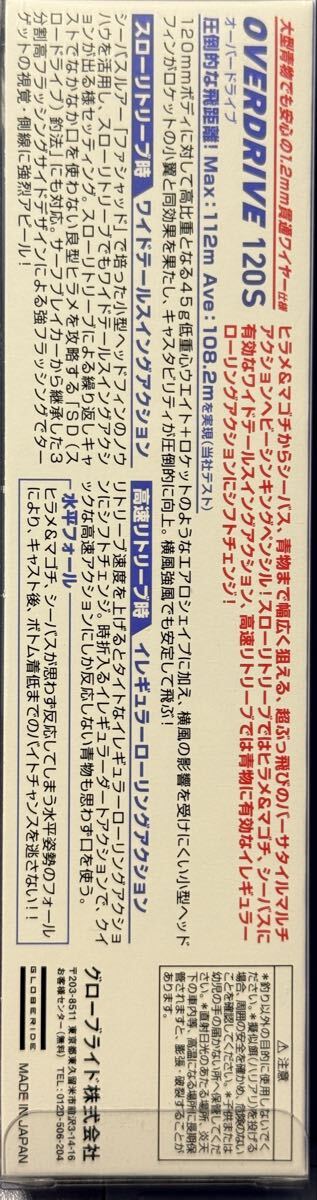 大型青物でも安心の1.2mm貫通ワイヤー仕様
OVERDRIVE 120S
オーバードライブ
ヒラメ&マゴチからシーバス、青物まで幅広く狙える、超ぶっ飛びのバーサタイルマルチ
アクションヘビーシンキングペンシル!スローリトリーブではヒラメ&マゴチ、シーバスに
有効なワイドテールスイングアクション、高速リトリーブでは青物に有効なイレギュラー
ローリングアクションにシフトチェンジ!
圧倒的な飛距離! Max:112m Ave:108.2mを実現(当社テスト)
120mmボディに対して高比重となる45g低重心ウエイト+ロケットのようなエアロシェイプに加え、横風の影響を受けにくい小型ヘッド
フィンがロケットの小翼と同効果を果たし、キャスタビリティが圧倒的に向上。横風強風でも安定して飛ぶ!
スローリトリーブ時 ワイドテールスイングアクション
シーバスルアー「ファシャッド」で培った小型ヘッドフィンのノウ
ハウを活用し、スローリトリーブでもワイドテールスイングアクシ
ョンが出る様セッティング。スローリトリーブによる繰り返しキャ
ストでなかなか口を使わない良型ヒラメを攻略する「SD(ス
ロードラブ)釣法」にも対応。サーフブレイカーから継承した3
分割高フラッシングサイドデザインによる強フラッシングでター
ゲットの視覚・側線に強烈アピール!
高速リトリーブ時 イレギュラーローリングアクション
リトリーブ速度を上げるとタイトなイレギュラーローリングアクショ
ンにシフトチェンジ。時折入るイレギュラーダートアクションで、クイ
ックな高速アクションにしか反応しない青物も思わず口を使う。
水平フォール
ヒラメ&マゴチ、シーバスが思わず反応してしまう水平姿勢のフォール
により、キャスト後、ボトム着底までのバイトチャンスを逃さない!!
⚠注意
*釣り以外の目的に使用しないでく
ださい。*擬似餌(ハリアリ)を投げる
場合、周囲の安全を確かめ、危険のない
ことを確認してください。*子供または
幼児の手の届かない所へ保管してくだ
さい。*直射日光のあたる場所、炎天
下の車内等、高温になる場所に長期保
管されますと、膨張・破裂することが
あります。
グローブライド株式会社
〒203-8511 東京都東久留米市前沢3-14-16
お客様センター(無料) TEL:0120-506-204
GLOBERIDE
MADE IN JAPAN